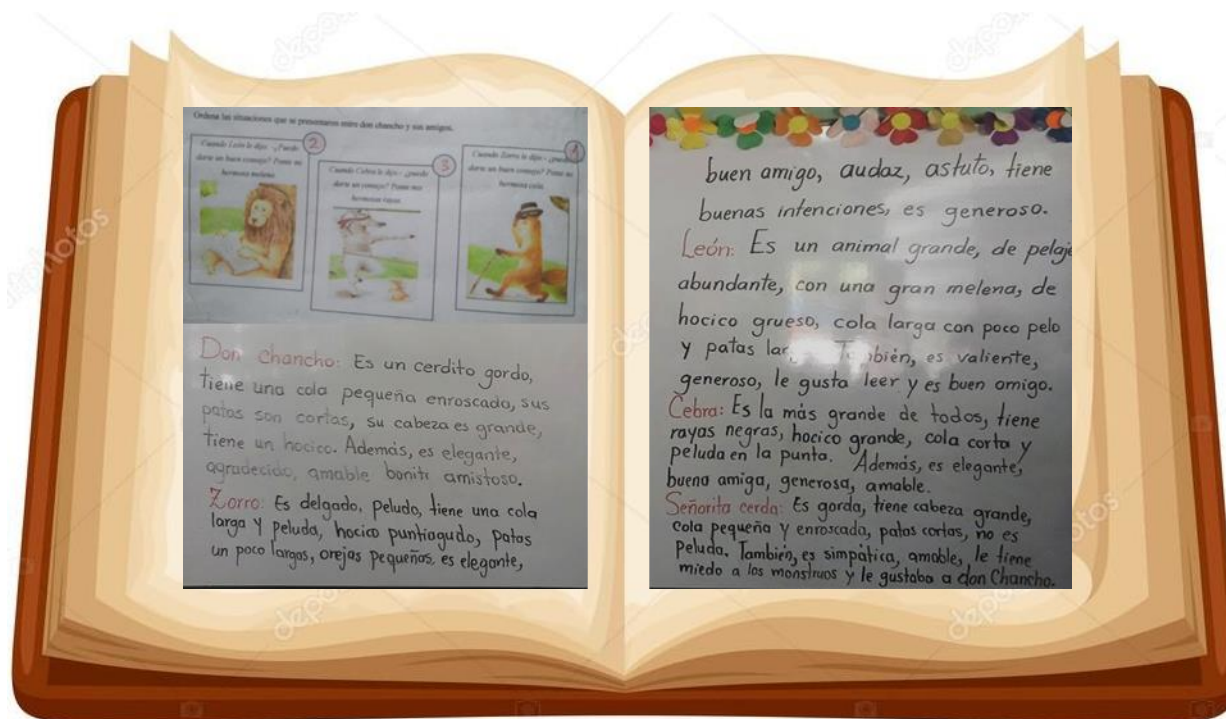 Ordena las situaciones que se presentaron entre don chancho y sus amigos.
2
Cuando León le dijo: -¿Puedo
darte un buen consejo? Ponte mi
hermosa melena
3
Cuando Cebra le dijo:- ¿puedo
darte un consejo? Ponte mis
hermosas rayas
1
Cuando Zorro le dijo:- ¿puedo
darte un buen consejo? Ponte mi
hermosa cola
Don chancho: Es un cerdito gordo,
tiene una cola pequeña enroscada, sus
patas son cortas, su cabeza es grande,
tiene un hocico. Además, es elegante,
agradecido, amable amistoso.
Zorro: Es delgado, peludo, tiene una cola
larga y peluda, hocico puntiagudo, patas
un poco largas, orejas pequeñas, es elegante,
buen amigo, audaz, astuto, tiene
buenas intenciones, es generoso.
León: Es un animal grande, de pelaje
abundante, con una gran melena, de
hocico grueso, cola larga con poco pelo
y patas es valiente,
generoso, le gusta leer y es buen amigo.
Cebra: Es la más grande de todos, tiene
rayas negras, hocico grande, cola corta y
peluda en la punta. Además, es elegante,
buena amiga, generosa, amable.
Señorita cerda: Es gorda, tiene cabeza grande,
cola pequeña y enroscada, patas cortas, no es
peluda. También, es simpática, amable, le tiene
miedo a los monstruos y le gustaba a don Chancho.
depositphotos